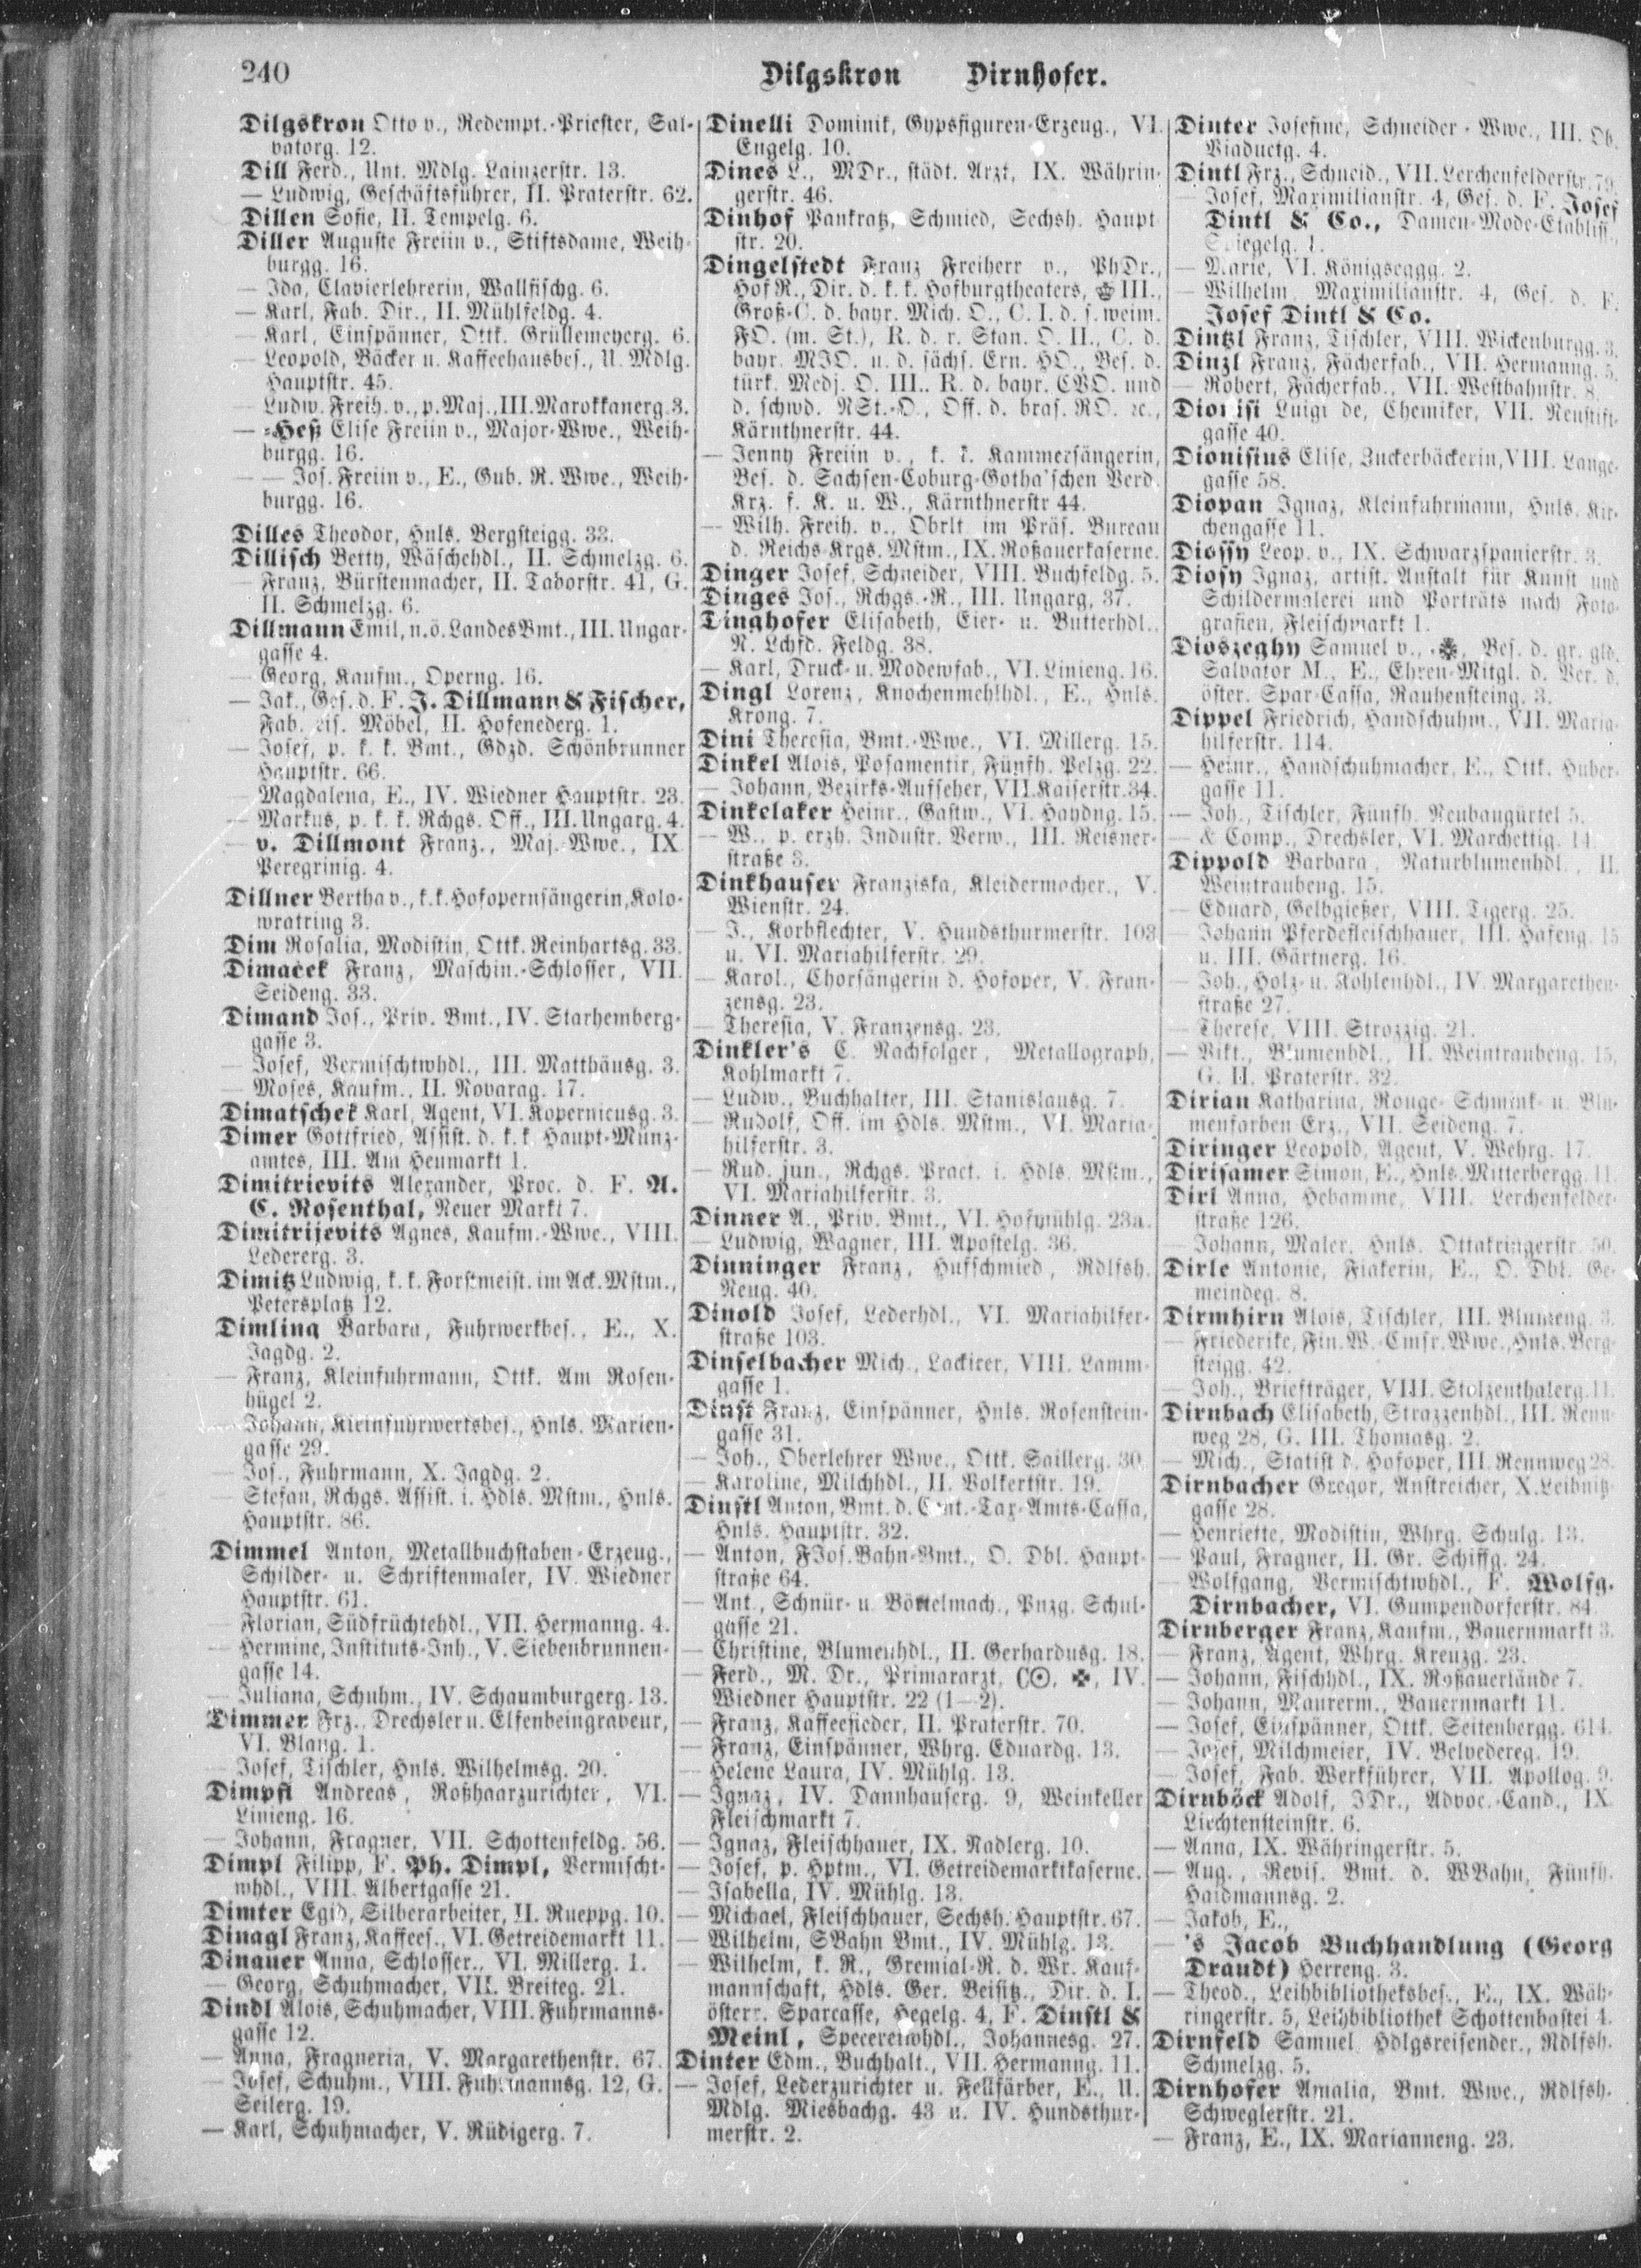 240
Dilgskron Dirnhofer.
Dilgskron Otto v., Redempt.-Priester, Sal-
vatorg. 12.
Dill Ferd., Unt. Mdlg. Lainzerstr. 13.
— Ludwig, Geschäftsführer, II. Praterstr. 62.
Dillen Sofie, II. Tempelg. 6.
Diller Auguste Freiin v., Stiftsdame, Weih-
burgg. 16.
— Ida, Clavierlehrerin, Wallfischg. 6.
— Karl, Fab. Dir., II. Mühlfeldg. 4.
— Karl, Einspänner, Ottk. Grüllemeyerg. 6.
— Leopold, Bäcker u. Kaffeehausbes., U. Mdlg.
Hauptstr. 45.
— Ludw. Freih. v., p. Maj., III. Marokkanerg. 3.
— -Heß Elise Freiin v., Major-Wwe., Weih-
burgg. 16.
— — Jos. Freiin v., E., Gub. R. Wwe., Weih-
burgg. 16.
Dilles Theodor, Hnls. Bergsteigg. 33.
Dillisch Betty, Wäschehdl., II. Schmelzg. 6.
— Franz, Bürstenmacher, II. Taborstr. 41, G.
II. Schmelzg. 6.
Dillmann Emil, n.ö. Landes Bmt., III. Ungar-
gasse 4.
— Georg, Kaufm., Operng. 16.
— Jak., Ges. d. F. J. Dillmann & Fischer,
Fab. eis. Möbel, II. Hofenederg. 1.
— Josef, p. k. k. Bmt., Gdzd. Schönbrunner
Hauptstr. 66.
— Magdalena, E., IV. Wiedner Hauptstr. 23.
— Markus, p. k. k. Rchgs. Off., III. Ungarg. 4.
— v. Dillmont Franz., Maj. Wwe., IX
Peregrinig. 4.
Dillner Bertha v., k.k. Hofopernsängerin, Kolo-
wratring 3.
Dim Rosalia, Modistin, Ottk. Reinhartsg. 33.
Dimaček Franz, Maschin.-Schlosser, VII.
Seideng. 33.
Dimand Jos., Priv. Bmt., IV. Starhemberg-
gasse 3.
— Josef, Vermischtwhdl., III. Matthäusg. 3.
— Moses, Kaufm., II. Novarag. 17.
Dimatschek Karl, Agent, VI. Kopernicusg. 3.
Dimer Gottfried, Assist. d. k.k. Haupt-Münz-
amtes, III. Am Heumarkt 1.
Dimitrievits Alexander, Proc. d. F. A.
C. Rosenthal, Neuer Markt 7.
Dimitrijevits Agnes, Kaufm.-Wwe., VIII.
Ledererg. 3.
Dimitz Ludwig, k. k. Forstmeist. im Ack. Mstm.,
Petersplatz 12.
Dimling Barbara, Fuhrwerkbes., E., X.
Jagdg. 2.
— Franz, Kleinfuhrmann, Ottk. Am Rosen-
hügel 2.
— Johann, Kleinfuhrwerksbes., Hnls. Marien-
gasse 29.
— Jos., Fuhrmann, X. Jagdg. 2.
— Stefan, Rchgs. Assist. i. Hdls. Mstm., Hnls.
Hauptstr. 86.
Dimmel Anton, Metallbuchstaben-Erzeug.,
Schilder- u. Schriftenmaler, IV. Wiedner
Hauptstr. 61.
— Florian, Südfrüchtehdl., VII. Hermanng. 4.
— Hermine, Instituts-Inh., V. Siebenbrunnen-
gasse 14.
— Juliana, Schuhm., IV. Schaumburgerg. 13.
Dimmer Frz., Drechsler u. Elfenbeingraveur,
VI. Blang. 1.
— Josef, Tischler, Hnls. Wilhelmsg. 20.
Dimpfl Andreas, Roßhaarzurichter, VI.
Linieng. 16.
— Johann, Fragner, VII. Schottenfeldg. 56.
Dimpl Filipp, F. Ph. Dimpl, Vermischt-
whdl., VIII. Albertgasse 21.
Dimter Egid, Silberarbeiter, II. Rueppg. 10.
Dinagl Franz, Kaffees., VI. Getreidemarkt 11.
Dinauer Anna, Schlosser., VI. Millerg. 1.
— Georg, Schuhmacher, VII. Breiteg. 21.
Dindl Alois, Schuhmacher, VIII. Fuhrmanns-
gasse 12.
— Anna, Fragnerin, V. Margarethenstr. 67.
— Josef, Schuhm., VIII. Fuhrmannsg. 12, G.
Seilerg. 19.
— Karl, Schuhmacher, V. Rüdigerg. 7.
Dinelli Dominik, Gypsfiguren-Erzeug., VI.
Engelg. 10.
Dines L., MDr., städt. Arzt, IX. Währin-
gerstr. 46.
Dinhof Pankratz, Schmied, Sechsh. Haupt
str. 20.
Dingelstedt Franz Freiherr v., PhDr.,
Hof R., Dir. d. k. k. Hofburgtheaters, III.,
Groß-C. d. bayr. Mich. O., C. I. d. s. weim.
FO. (m. St.), R. d. r. Stan. O. II., C. d.
bayr. MJO. u. d. sächs. Ern. HO., Bes. d.
türk. Medj. O. III., R. d. bayr. CVO. und
d. schwd. NSt.-O., Off. d. bras. RO. ec.,
Kärnthnerstr. 44.
— Jenny Freiin v., k. k. Kammersängerin,
Bes. d. Sachsen-Coburg-Gotha'schen Verd.
Krz. f. K. u. W., Kärnthnerstr 44.
— Wilh. Freih. v., Obrlt. im Präs. Bureau
d. Reichs Krgs. Mstm., IX. Roßauerkaserne.
Dinger Josef, Schneider, VIII. Buchfeldg. 5.
Dinges Jos., Rchgs.-R., III. Ungarg, 37.
Dinghofer Elisabeth, Eier- u. Butterhdl.,
N. Lchfd. Feldg. 38.
— Karl, Druck- u. Modewfab., VI. Linieng. 16.
Dingl Lorenz, Knochenmehlhdl., E., Hnls.
Krong. 7.
Dini Theresia, Bmt.-Wwe., VI. Millerg. 15.
Dinkel Alois, Posamentir, Fünfh. Pelzg. 22.
— Johann, Bezirks-Aufseher, VII. Kaiserstr. 34.
Dinkelaker Heinr., Gastw., VI. Haydng. 15.
— W., p. erzh. Industr. Verw., III. Reisner-
straße 3.
Dinkhauser Franziska, Kleidermacher., V.
Wienstr. 24.
— J., Korbflechter, V. Hundsthurmerstr. 103
u. VI. Mariahilferstr. 29.
— Karol., Chorsängerin d. Hofoper, V. Fran-
zensg. 23.
— Theresia, V. Franzensg. 23.
Dinkler's C. Nachfolger, Metallograph,
Kohlmarkt 7.
— Ludw., Buchhalter, III. Stanislausg. 7.
— Rudolf, Off. im Hdls. Mstm., VI. Maria-
hilferstr. 3.
— Rud. jun., Rchgs. Pract. i. Hdls. Mstm.,
VI. Mariahilferstr. 3.
Dinner A., Priv. Bmt., VI. Hofmühlg. 23a.
— Ludwig, Wagner, III. Apostelg. 36.
Dinninger Franz, Hufschmied, Rdlfsh.
Neug. 40.
Dinold Josef, Lederhdl., VI. Mariahilfer-
straße 103.
Dinselbacher Mich., Lackirer, VIII. Lamm-
gasse 1.
Dinst Franz, Einspänner, Hnls. Rosenstein-
gasse 31.
— Joh., Oberlehrer Wwe., Ottk. Saillerg. 30.
— Karoline, Milchhdl., II. Volkertstr. 19.
Dinstl Anton, Bmt. d. Cent.-Tax-Amts-Cassa,
Hnls. Hauptstr. 32.
— Anton, FJos. Bahn-Bmt., O. Dbl. Haupt-
straße 64.
— Ant., Schnür- u. Börtelmach., Pnzg. Schul-
gasse 21.
— Christine, Blumenhdl., II. Gerhardusg. 18.
— Ferd., M. Dr., Primararzt, IV.
Wiedner Hauptstr. 22 (1—2).
— Franz, Kaffeesieder, II. Praterstr. 70.
— Franz, Einspänner, Whrg. Eduardg. 13.
— Helene Laura, IV. Mühlg. 13.
— Ignaz, IV. Dannhauserg. 9, Weinkeller
Fleischmarkt 7.
— Ignaz, Fleischhauer, IX. Nadlerg. 10.
— Josef, p. Hptm., VI. Getreidemarktkaserne.
— Isabella, IV. Mühlg. 13.
— Michael, Fleischhauer, Sechsh. Hauptstr. 67.
— Wilhelm, SBahn Bmt., IV. Mühlg. 13.
— Wilhelm, k. R., Gremial-R. d. Wr. Kauf-
mannschaft, Hdls. Ger. Beisitz., Dir. d. I.
österr. Sparcasse, Hegelg. 4, F. Dinstl &
Meinl, Specereiwhdl., Johannesg. 27.
Dinter Edm., Buchhalt., VII. Hermanng. 11.
— Josef, Lederzurichter u. Fellfärber, E., U.
Mdlg. Miesbachg. 43 u. IV. Hundsthur-
merstr. 2.
Dinter Josefine, Schneider-Wwe., III. Ob.
Viaductg. 4.
Dintl Frz., Schneid., VII. Lerchenfelderstr. 79.
— Josef, Maximilianstr. 4, Ges. d. F. Josef
Dintl & Co., Damen-Mode-Etabliss.,
Spiegelg. 1.
— Marie, VI. Königseggg. 2.
— Wilhelm Maximilianstr. 4, Ges. d. F.
Josef Dintl & Co.
Dintzl Franz, Tischler, VIII. Wickenburgg. 3.
Dinzl Franz, Fächerfab., VII. Hermanng. 5.
— Robert, Fächerfab., VII. Westbahnstr. 8.
Dionisi Luigi de, Chemiker, VII. Neustift-
gasse 40.
Dionisius Elise, Zuckerbäckerin, VIII. Lange-
gasse 58.
Diopan Ignaz, Kleinfuhrmann, Hnls. Kir-
chengasse 11.
Diossy Leop. v., IX. Schwarzspanierstr. 3.
Diosy Ignaz, artist. Anstalt für Kunst und
Schildermalerei und Porträts nach Foto-
grafien, Fleischmarkt 1.
Dioszeghy Samuel v., Bes. d. gr. gld.
Salvator M., E., Ehren-Mitgl. d. Ver. d.
öster. Spar-Cassa, Rauhensteing. 3.
Dippel Friedrich, Handschuhm., VII. Maria-
hilferstr. 114.
— Heinr., Handschuhmacher, E., Ottk. Huber-
gasse 11.
— Joh., Tischler, Fünfh. Neubaugürtel 5.
— & Comp., Drechsler, VI. Marchettig. 14.
Dippold Barbara, Naturblumenhdl., II.
Weintraubeng. 15.
— Eduard, Gelbgießer, VIII. Tigerg. 25.
— Johann Pferdefleischhauer, III. Hafeng. 15
u. III. Gärtnerg. 16.
— Joh., Holz- u. Kohlenhdl., IV. Margarethen-
straße 27.
— Therese, VIII. Strozzig. 21.
— Vikt., Blumenhdl., II. Weintraubeng. 15,
G. II. Praterstr. 32.
Dirian Katharina, Rouge- Schmink- u. Blu-
menfarben Erz., VII. Seideng. 7.
Diringer Leopold, Agent, V. Wehrg. 17.
Dirisamer Simon, E., Hnls. Mitterbergg. 11.
Dirl Anna, Hebamme, VIII. Lerchenfelder-
straße 126.
— Johann, Maler, Hnls. Ottakringerstr. 50.
Dirle Antonie, Fiakerin, E., O. Dbl. Ge-
meindeg. 8.
Dirmhirn Alois, Tischler, III. Blumeng. 3.
— Friederike, Fin. W. Cmsr. Wwe., Hnls. Berg-
steigg. 42.
— Joh., Briefträger, VIII. Stolzenthalerg. 11.
Dirnbach Elisabeth, Strazzenhdl., III. Renn-
weg 28, G. III. Thomasg. 2.
— Mich., Statist d. Hofoper, III. Rennweg 28.
Dirnbacher Gregor, Anstreicher, X. Leibnitz-
gasse 28.
— Henriette, Modistin, Whrg. Schulg. 13.
— Paul, Fragner, II. Gr. Schiffg. 24.
— Wolfgang, Vermischtwhdl., F. Wolfg.
Dirnbacher, VI. Gumpendorferstr. 84.
Dirnberger Franz, Kaufm., Bauernmarkt 3.
— Franz, Agent, Whrg. Kreuzg. 23.
— Johann, Fischhdl., IX. Roßauerlände 7.
— Johann, Maurerm., Bauernmarkt 11.
— Josef, Einspänner, Ottk. Seitenbergg. 614.
— Josef, Milchmeier, IV. Belvedereg. 19.
— Josef, Fab. Werkführer, VII. Apollog. 9.
Dirnböck Adolf, JDr., Advoc.-Cand., IX.
Liechtensteinstr. 6.
— Anna, IX. Währingerstr. 5.
— Aug., Revis. Bmt. d. WBahn, Fünfh.
Haidmannsg. 2.
— Jakob, E.,
— 's Jacob Buchhandlung (Georg
Draudt) Herreng. 3.
— Theod., Leihbibliotheksbes., E., IX. Wäh-
ringerstr. 5, Leihbibliothek Schottenbastei 4.
Dirnfeld Samuel, Hdlgsreisender, Rdlfsh.
Schmelzg. 5.
Dirnhofer Amalia, Bmt. Wwe., Rdlfsh.
Schweglerstr. 21.
— Franz, E., IX. Marianneng. 23.